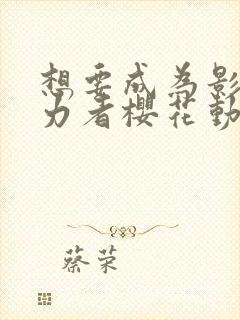 想要成为影
力者樱花動
蔡荣